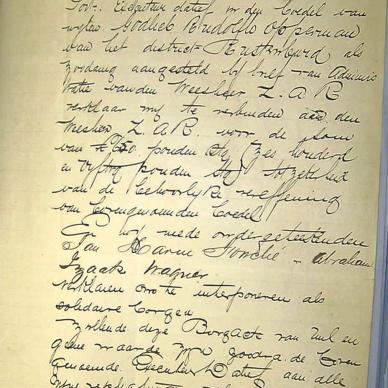 Executeur datief in den Boedel van
wylen Godlieb Rudolf Opperman
van het district Rustenburg als
zoodanig aangesteld bij brief van Adminis
tratie van den Weesheer Z. A. R
verklaar my te verbinden aan den
Weesheer Z. A. R. voor de som
van £650 ponden stg (zes honderd
en vyftig ponden stg) tot zekerheid
van de behoorlyke vereffening
van bovengenoemden Boedel
En wy mede ondergeteekenden
Jan Harm - Abraham
Izaak Wagner
verklaren ons te interponeren als
solidaire borgen
Zullende deze Borgacte van nul en
geene waarde zyn zoodra de boven
genoemde Executeur Datief aan alle